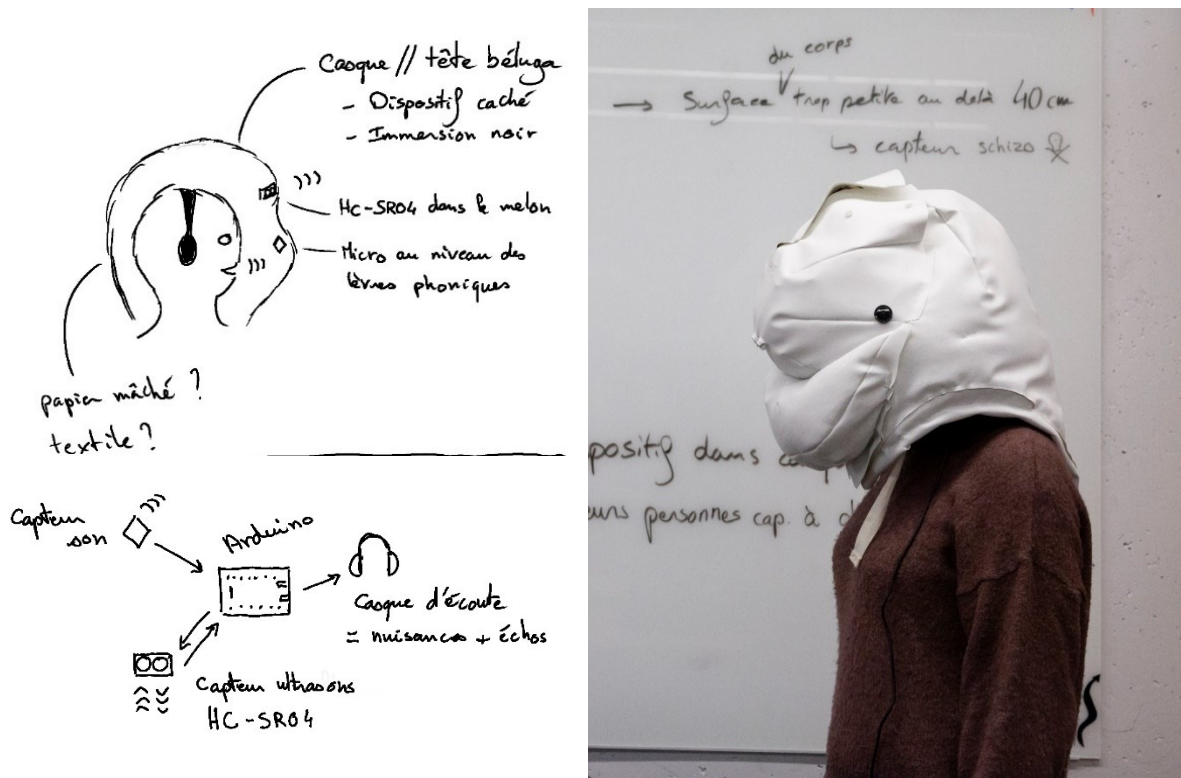 Casque // tête béluga
- Dispositif caché
- Immersion noir
HC-SR04 dans le melon
Micro au niveau des
lèvres phoniques
papier mâché ?
textile ?
Capteur
son
Arduino
Casque d'écoute
= nuisances + échos
Capteur ultrasons
HC-SR04
du corps
→ Surface trop petite au delà 40 cm
↳ capteur schizo
positif dans
personnes cap. à